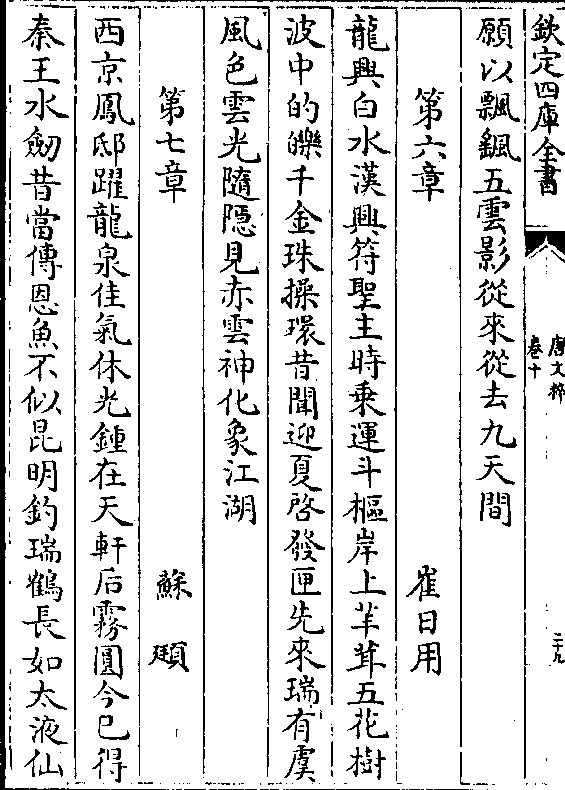 欽定四庫全書
唐文粹
卷十
二十九
願以飄颻五雲影從來從去九天間
第六章 崔日用
龍興白水漢興符聖主時乗運斗樞岸上丰茸五花樹
波中的皪千金珠操環昔聞迎夏啓發匣先來瑞有虞
風色雲光隨隱見赤雲神化象江湖
第七章 蘇頲
西京鳳邸躍龍泉佳氣休光鍾在天軒后霧圖今已得
秦王水劒昔當傳恩魚不似昆明釣瑞鶴長如太液仙